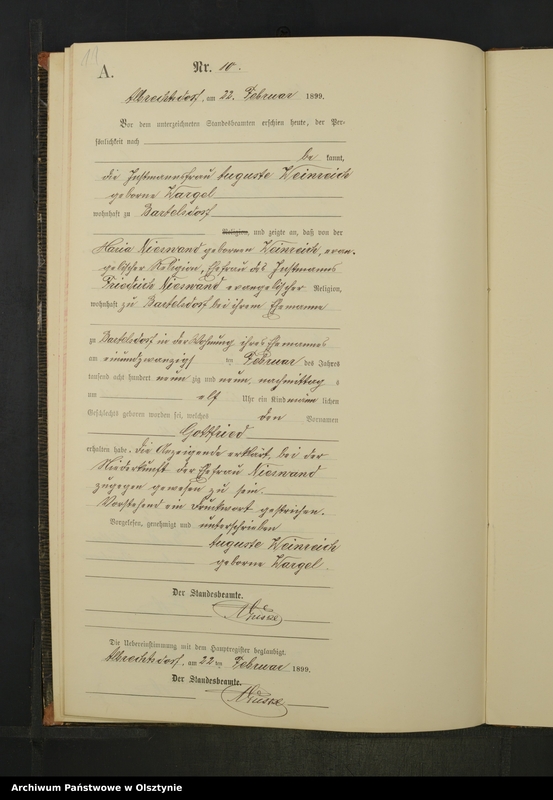 A.
Nr. 10.
Albrechtsdorf, am 22. Februar 1899.
Vor dem unterzeichneten Standesbeamten erschien heute, der Per-
sönlichkeit nach
be kannt,
die Instmannsfrau Auguste Weinreich
geborne Wargel
wohnhaft zu Bartelsdorf
Religion, und zeigte an, daß von der
Maria Nieswand gebornen Weinreich, evan-
gelischer Religion, Ehefrau des Instmanns
Friedrich Nieswand evangelischer Religion,
wohnhaft zu Bartelsdorf bei ihrem Ehemanne
zu Bartelsdorf in der Wohnung ihres Ehemannes
am einundzwanzig ten Februar des Jahres
tausend acht hundert neun zig und neun, nachmittag s
um elf Uhr ein Kind männ lichen
Geschlechts geboren worden sei, welches den Vornamen
Gottfried
erhalten habe. Die Anzeigende erklärt, bei der
Niederkunft der Ehefrau Nieswand
zugegen gewesen zu sein.
Vorstehend ein Druckwort gestrichen.
Vorgelesen, genehmigt und unterschrieben
Auguste Weinreich
geborne Wargel.
Der Standesbeamte.
Die Uebereinstimmung mit dem Hauptregister beglaubigt.
Albrechtsdorf, am 22 ten Februar 1899.
Der Standesbeamte.
Archiwum Państwowe w Olsztynie